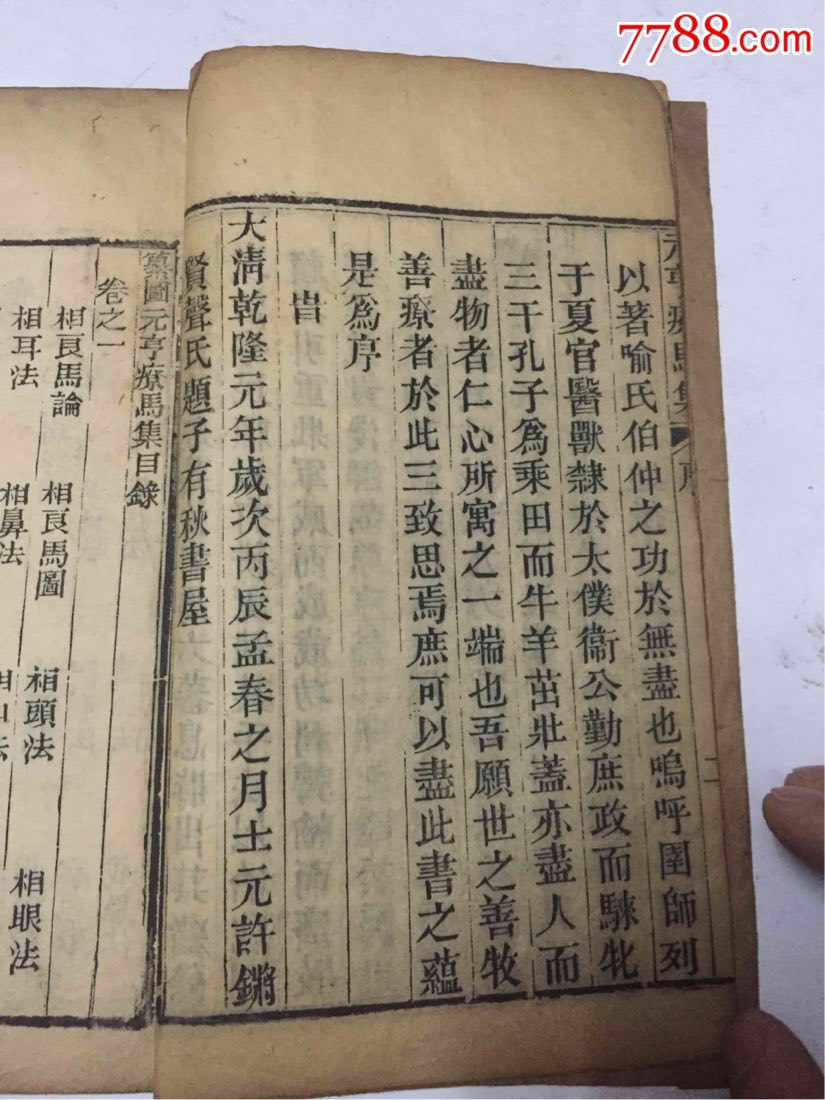 7788.com
元亨療馬集 序
二
以著喻氏伯仲之功於無盡也嗚呼圉師列
于夏官醫獸隸於太僕衞公勤庶政而騋牝
三千孔子為乘田而牛羊茁壯蓋亦盡人而
盡物者仁心所寓之一端也吾願世之善牧
善療者於此三致思焉庶可以盡此書之蘊
是爲序
旹
大淸乾隆元年歲次丙辰孟春之月士元許鏘
賢聲氏題子有秋書屋
纂圖元亨療馬集目錄
卷之一
相良馬論 相良馬圖 相頭法 相眼法
相耳法 相鼻法